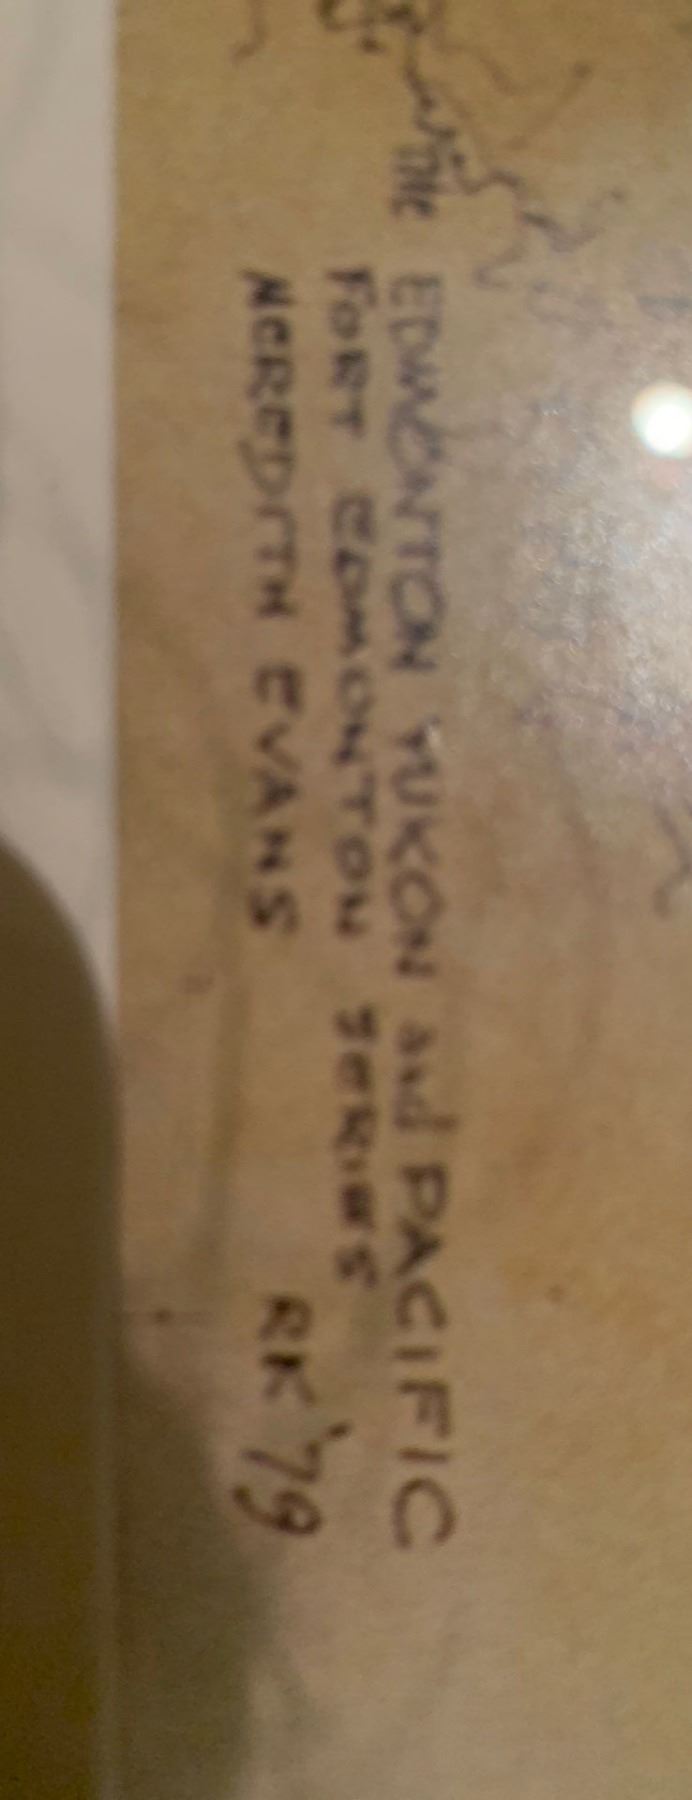 THE EDMONTON YUKON and PACIFIC
FORT EDMONTON SERIES
MEREDITH EVANS RK '79